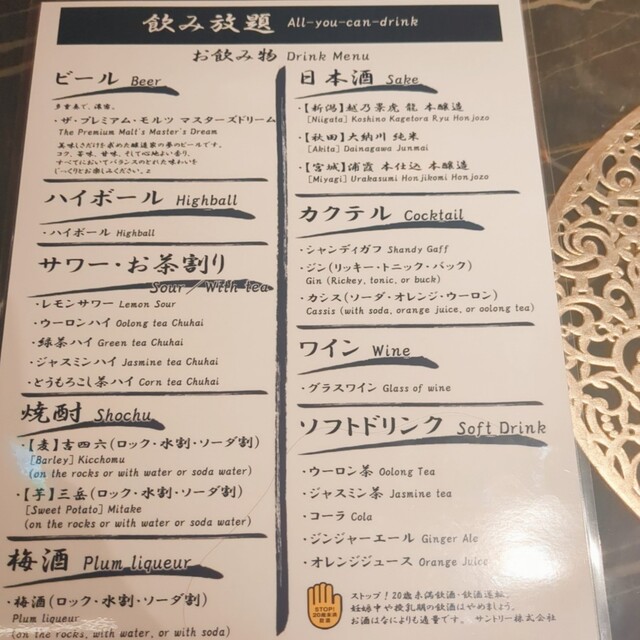 飲み放題 All-you-can-drink
お飲み物 Drink Menu
ビール Beer
多重奏で、濃密。
・ザ・プレミアム・モルツ マスターズドリーム
The Premium Malt's Master's Dream
美味しさだけを求めた醸造家の夢のビールです。
コク、苦味、甘味、そして心地よい香り。
すべてにおいてバランスのとれた味わいを
じっくりとお楽しみください。
ハイボール Highball
・ハイボール Highball
サワー・お茶割り
Sour／With tea
・レモンサワー Lemon Sour
・ウーロンハイ Oolong tea Chuhai
・緑茶ハイ Green tea Chuhai
・ジャスミンハイ Jasmine tea Chuhai
・とうもろこし茶ハイ Corn tea Chuhai
焼酎 Shochu
・【麦】吉四六(ロック・水割・ソーダ割)
[Barley] Kicchomu
(on the rocks or with water or soda water)
・【芋】三岳(ロック・水割・ソーダ割)
[Sweet Potato] Mitake
(on the rocks or with water or soda water)
梅酒 Plum liqueur
・梅酒(ロック・水割・ソーダ割)
Plum liqueur
(on the rocks, with water, or with soda)
日本酒 Sake
・【新潟】越乃景虎 龍 本醸造
[Niigata] Koshino Kagetora Ryu Honjozo
・【秋田】大納川 純米
[Akita] Dainagawa Junmai
・【宮城】浦霞 本仕込 本醸造
[Miyagi] Urakasumi Honjikomi Honjozo
カクテル Cocktail
・シャンディガフ Shandy Gaff
・ジン(リッキー・トニック・バック)
Gin (Rickey, tonic, or buck)
・カシス(ソーダ・オレンジ・ウーロン)
Cassis (with soda, orange juice, or oolong tea)
ワイン Wine
・グラスワイン Glass of wine
ソフトドリンク Soft Drink
・ウーロン茶 Oolong Tea
・ジャスミン茶 Jasmine tea
・コーラ Cola
・ジンジャーエール Ginger Ale
・オレンジジュース Orange Juice
STOP!
20歳未満
飲酒
ストップ！20歳未満飲酒・飲酒運転。
妊娠中や授乳期の飲酒はやめましょう。
お酒はなによりも適量です。 サントリー株式会社